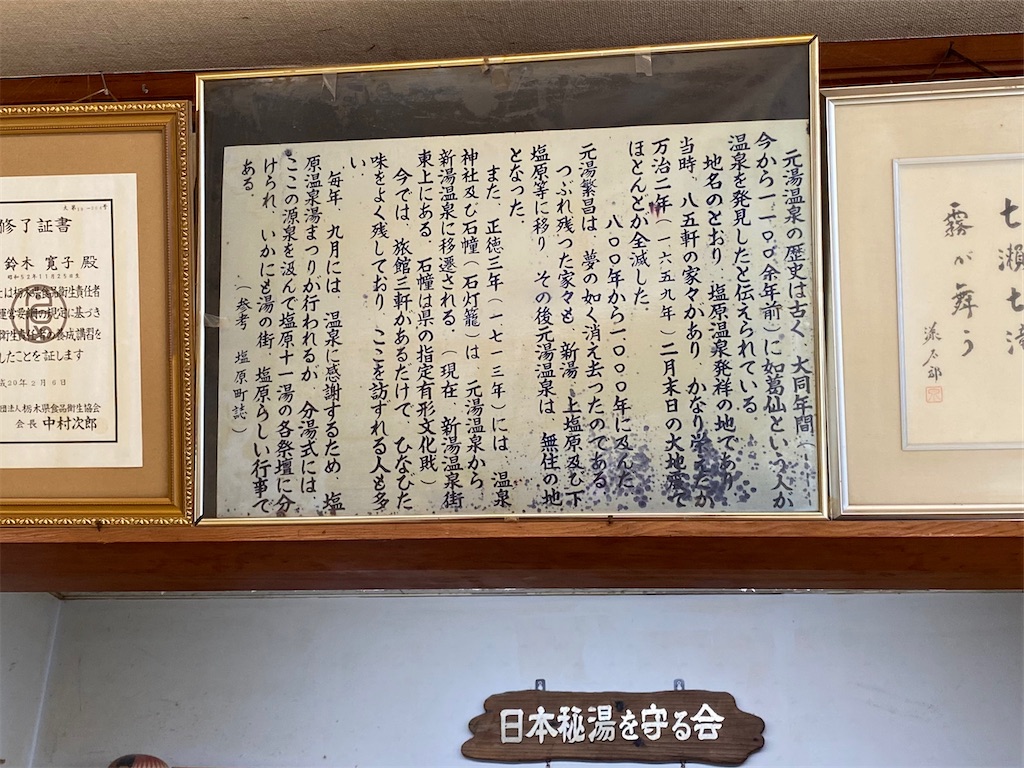 元湯温泉の歴史は古く、大同年間(
今から一一〇〇余年前)に如葛仙という人が
温泉を発見したと伝えられている。
地名のとおり、塩原温泉発祥の地であり、
当時、八五軒の家々があり、かなり栄えたが
万治二年(一六五九年)二月末日の大地震で
ほとんどが全滅した。
八〇〇年から一〇〇〇年に及んだ
元湯繁昌は、夢の如く消え去ったのである。
つぶれ残った家々も、新湯、上塩原及び下
塩原等に移り、その後元湯温泉は、無住の地
となった。
また、正徳三年(一七一三年)には、温泉
神社及び石幢(石灯籠)は、元湯温泉から
新湯温泉に移遷される。(現在、新湯温泉街
東上にある。石幢は県の指定有形文化財)
今では、旅館三軒があるだけで、ひなびた
味をよく残しており、ここを訪ずれる人も多
い。
毎年、九月には、温泉に感謝するため、塩
原温泉湯まつりが行われるが、分湯式には
ここの源泉を汲んで塩原十一湯の各祭壇に分
けられ、いかにも湯の街、塩原らしい行事で
ある。
(参考 塩原町誌)
七瀬七滝
霧が舞う
修了証書
鈴木 寛子 殿
昭和52年11月25日生
は栃木県食品衛生責任者
運営要綱の規定に基づき
衛生責任者の養成講習を
したことを証します
成20年2月6日
団法人栃木県食品衛生協会
会長 中村次郎
日本秘湯を守る会